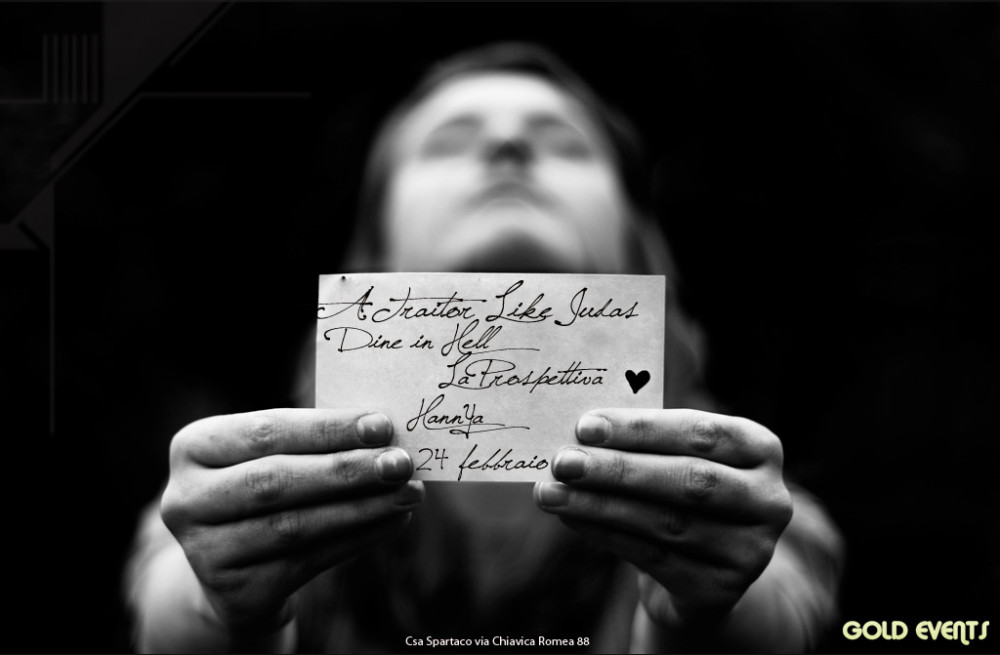 A Traitor Like Judas
Dine in Hell
La Prospettiva
HannYa
24 febbraio
Csa Spartaco via Chiavica Romea 88
GOLD EVENTS